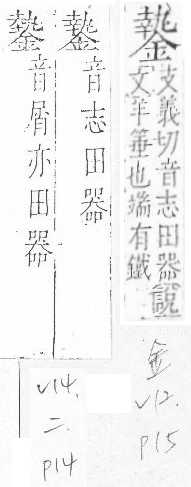 䥍
支義切音志田器說
文羊箠也端有鐵
䥍音志田器
䥍音屑亦田器
金
V12.
P15
V14.
二.
P14